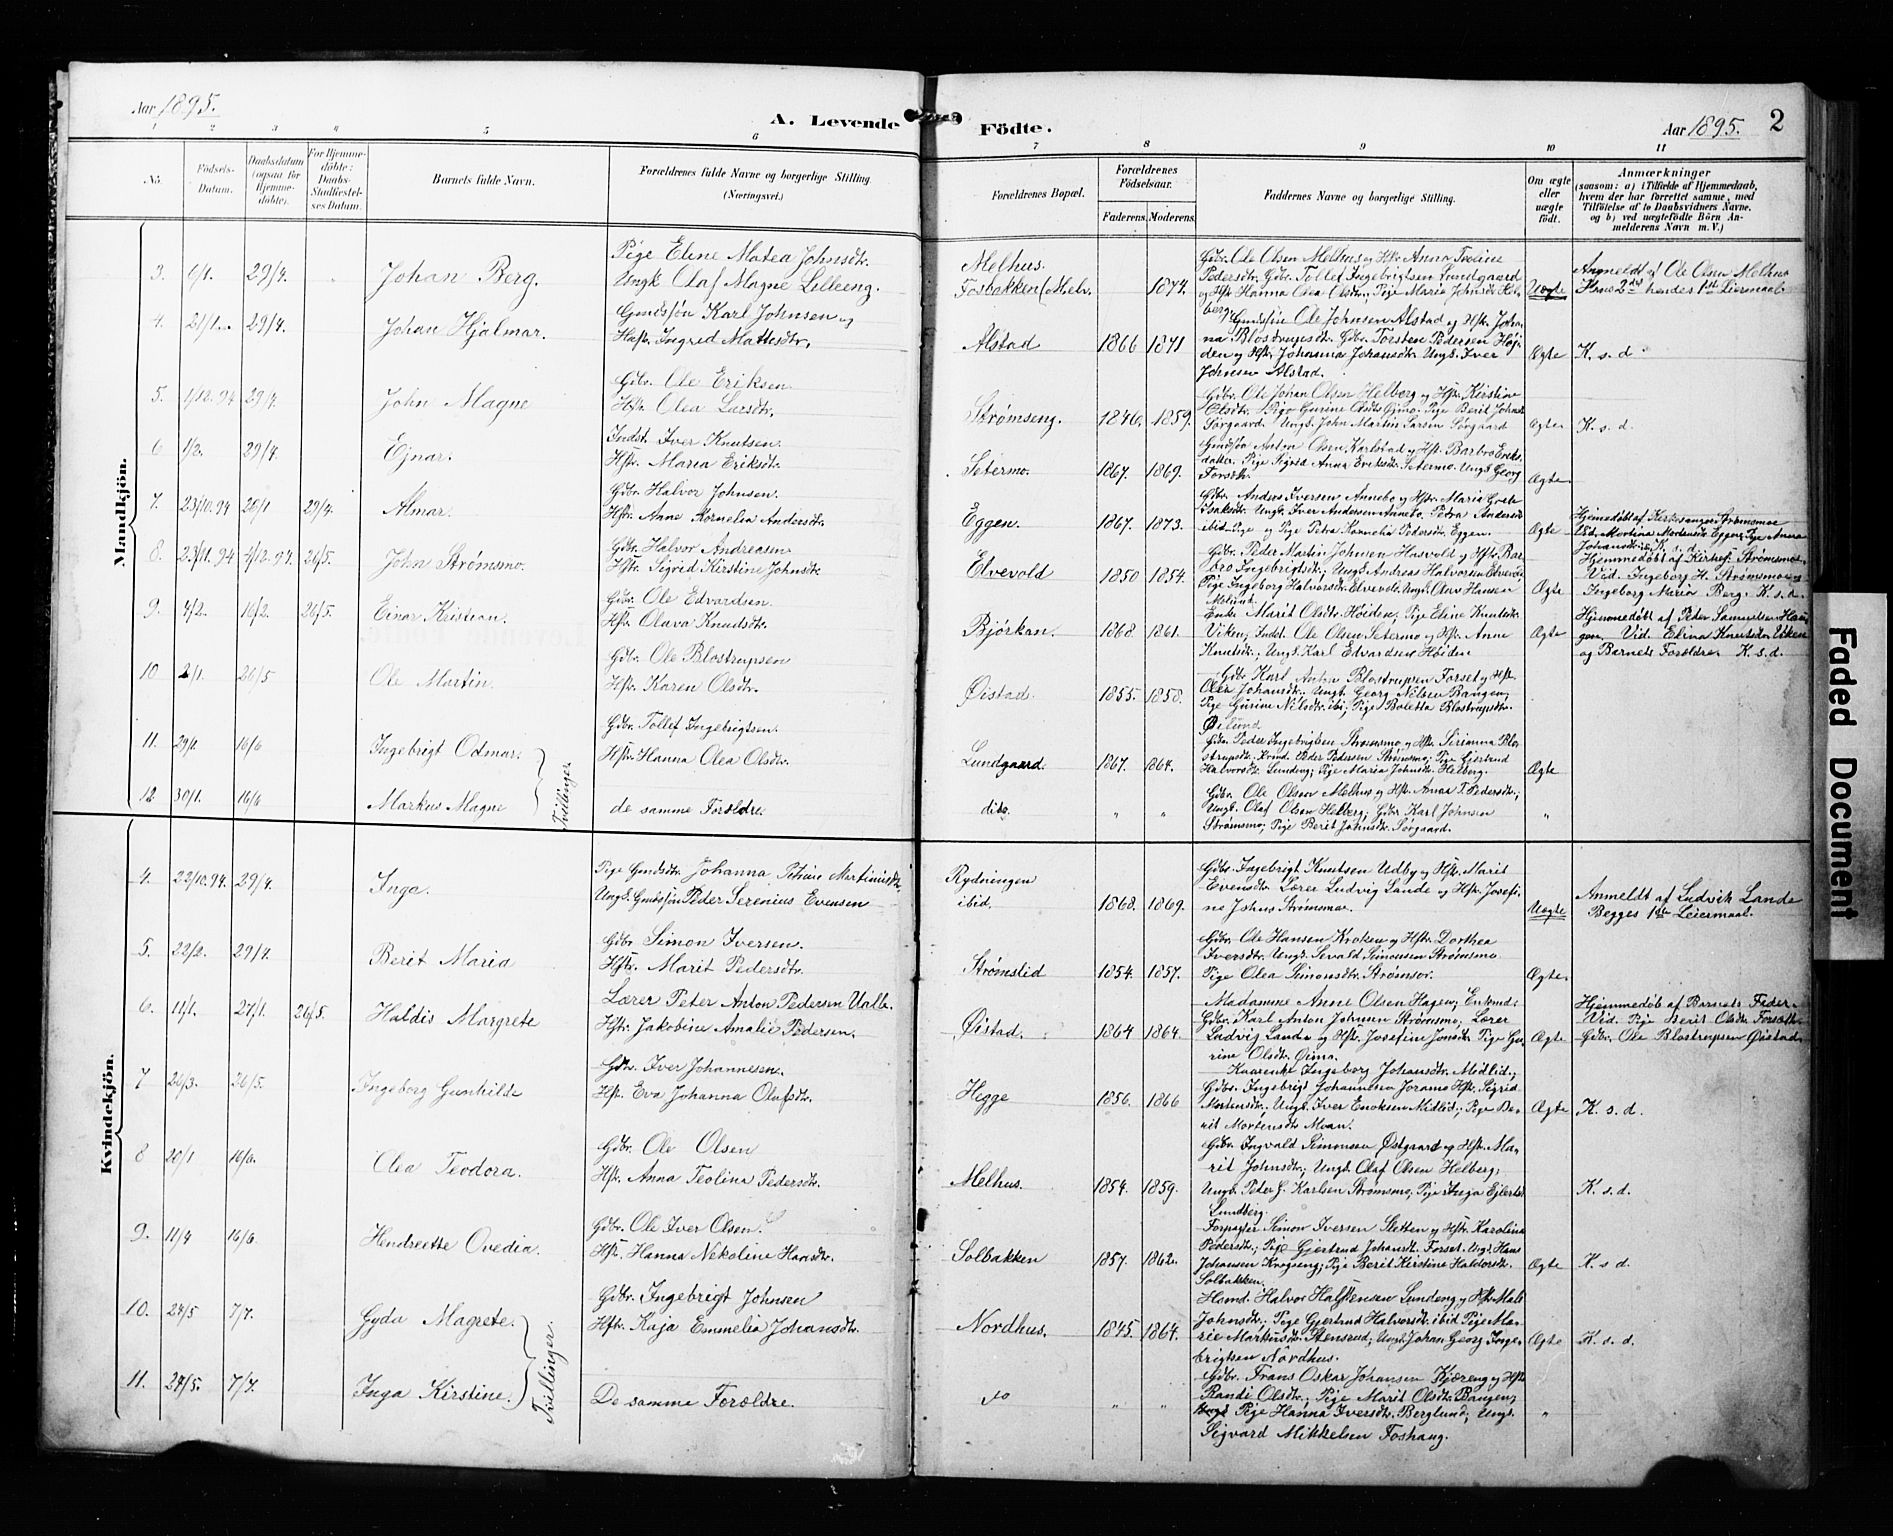 Aar 1895.
A. Levende
1 2 3 4 5 6
No.
Födsels-
Datum.
Daabsdatum
(ogsaa for
Hjemme-
döbte).
For Hjemme-
döbte:
Daabs-
Stadfæstel-
ses Datum.
Barnets fulde Navn.
Forældrenes fulde Navne og borgerlige Stilling.
(Næringsvei.)
Mandkjön.
3. 6/1. 29/4. Johan Berg.
Pige Eline Matea Johnsdtr.
Ungk Olaf Magne Lilleeng.
4. 21/1. 29/4. Johan Hjalmar.
Gmdsøn Karl Johnsen og
Hustr. Ingrid Mattisdtr.
5. 1/12. 94 29/4. John Magne
Gdbr. Ole Eriksen.
Hstr. Olea Larsdtr.
6 1/2. 29/4. Ejnar.
Indst. Iver Knutsen.
Hstr. Maria Eriksdtr.
7. 23/10. 94 20/1 29/4. Almar.
Gdbr. Halvor Johnsen.
Hstr. Anne Kornelia Andersdtr.
8. 23/11. 94 4/12. 94. 26/5. John Strømsmo.
Gdbr. Halvor Andreasen
Hstr. Sigrid Kirstine Johnsdtr
9. 4/2. 16/2. 26/5. Einar Kristian.
Gdbr. Ole Edvardsen.
Hstr Olava Knudsdtr.
10 2/1. 26/5 Ole Martin.
Gdbr. Ole Blostrupsen
Hstr. Karen Olsdtr.
11. 29/1. 16/6 Ingebrigt Odmar.
Gdbr. Tollef Ingebrigtsen.
Hstr. Hanna Olea Olsdtr.
12 30/1. 16/6 Markus Magne
Tvillinger.
de samme Forældre.
Kvindekjön.
4. 22/10. 94. 29/4. Inga.
Pige Gmdsdtr Johanna Petrine Martinusdtr
Ungk. Gmdssøn Peder Serenius Evensen
5. 22/2. 29/4. Berit Maria
Gdbr Simon Iversen.
Hstr. Marit Pedersdtr.
6. 11/1. 27/1. 26/5. Haldis Margrete
Lærer Peter Anton Pedersen Valb.
Hstr. Jakobine Amalie Pedersen.
7 26/3. 26/5. Ingeborg Gunhilde
Gdbr. Iver Johannesen.
Hstr. Eva Johanna Olafsdtr.
8 20/1 16/6. Olea Teodora.
Gdbr. Ole Olsen
Hstr. Anna Teolina Pedersdtr.
9. 11/4 16/6. Hendreette Ovedia.
Gdbr. Ole Iver Olsen.
Hstr. Hanna Nekoline Hansdtr.
10. 24/5 7/7. Gyda Magrete.
Gdbr. Ingebrigt Johnsen
Hstr. Kaja Emmelia Johansdtr.
11. 24/5. 7/7. Inga Kirstine.
Tvillinger.
De samme Forældre.
Födte.
Aar 1895. 2
7 8 9 10 11
Forældrenes Bopæl.
Forældrenes
Födselsaar.
Faderens. Moderens.
Faddernes Navne og borgerlige Stilling.
Om ægte
eller
uægte
födt.
Anmærkninger
(saasom: a) i Tilfælde af Hjemmedaab,
hvem der har forrettet samme, med
Tilföielse af to Daabsvidners Navne,
og b) ved uægtefödte Börn An-
melderens Navn m. V.)
Melhus.
Fosbakken (Melv. 1874.
Gdbr. Ole Olsen Melhus og Hstr Anna Teoline
Pedersdtr. Gdbr. Tollef Ingebrigtsen Lundgaard
og Hstr Hanna Olea Olsdtr. Pige Maria Johnsdtr Hel-
berg.
Uægte
Anmeldt af Ole Olsen Melhus
Hans 2det hendes 1ste Leiermaal.
Alstad 1866 1871
Gmdsøn Ole Johnsen Alstad og Hstr. Johan-
na Blostrupsdtr. Gdbr. Torsten Pedersen Høj-
den og Hstr. Johanna Johansdtr. Ungk. Iver
Johnsen Alstad.
Ægte K. s. d.
Strømseng. 1846. 1859.
Gdbr. Ole Johan Olsen Helberg og Hstr. Kirstine
Olsdtr. Pige Gurine Olsdtr Gjmo. Pige Berit Johnsdtr
Sørgaard. Ungk. John Martin Larsen Sørgaard
Ægte K. s. d.
Setermo. 1867. 1869.
Gmdsøn Anton Olsen Karlstad og Hstr. Barbro Eriks-
datter. Pige Sigrid Anna Eriksdtr. Setermo. Ungk Georg
Ægte.
Eggen. 1867. 1873.
Gdbr. Anders Iversen Annebo og Hstr. Maria Grete
Isaksdtr. Ungk. Iver Andersen Annebo. Petra Andersdtr
ibid. Pige og Pige Petra Kornelia Pedersdtr. Eggen.
Ægte
Hjemedøbt af Kirkesanger Strømsmoe
Vid. Martina Mortensdtr Eggen, Pige Anna
Johansdtr. K. s. d.
Elvevold 1850 1854.
Gdbr. Peder Martin Johnsen Hasvold og Hstr. Bar-
bro Ingebrigtsdtr. Ungk. Andreas Halvorsen Elvevold
Pige Ingeborg Halvorsdtr. Elvevold. Ungk. Olav Hansen
Molund.
Ægte
Hjemmedøbt af Kirkesg. Strømsmoe.
Vid. Ingeborg H. Strømsmoe og
Ingeborg Maria Berg. K. s. d.
Bjørkan. 1868. 1861.
Enke Marit Olsdtr. Høiden, Pige Eline Knudsdtr.
Viken; Indst. Ole Olsen Setermo og Hstr. Anne
Knutsdtr.; Ungk. Karl Edvardsen Høiden
Ægte
Hjemmedøbt af Peder Samuelsen Hau-
gen. Vid. Elina Knutsdtr Viken
og Barnets Forældre. K. s. d.
Øistad. 1855. 1858.
Gdbr Karl Anton Blostrupsen Forset og Hstr.
Olea Johansdtr. Ungk. Georg Nilsen Bangen;
Pige Gurine Nilsdtr. ibi; Pige Boletta Blostrupsdtr.
Øilund
Lundgaard. 1867. 1864.
Gdbr. Peder Ingebrigtsen Strømsmo og Hstr. Serianna Blo-
strupsdtr. Kvind. Peder Pedersen Strømsmo; Pige Gjertrud
Halvorsdtr. Lundeng; Pige Maria Johnsdtr. Helberg.
Ægte
dito. " "
Gdbr. Ole Olsen Melhus og Hstr. Anna T. Pedersdtr.;
Ungk. Olaf Olsen Helberg; Gdbr. Karl Johnsen
Strømsmo; Pige Berit Johnsdtr. Sørgaard.
"
Rydningen
ibid. 1868. 1869.
Gdbr. Ingebrigt Knutsen Udby og Hstr. Marit
Evensdtr. Lærer Ludvig Lande og Hstr. Josefi-
ne Johns Strømsmo.
Uægte
Anmeldt af Ludvik Lande
Begges 1ste Leiermaal.
Strømslid 1854. 1857.
Gdbr. Ole Hansen Kroken og Hstr. Dorthea
Iversdtr. Ungk. Sevald Simonsen Strømsmo
Pige Olea Simonsdtr. Strømsor.
Ægte.
Øistad. 1864 1864.
Madamme Anne Olsen Hagen; Enkmd:
Gdbr. Karl Anton Johnsen Strømsmo; Lærer
Ludvig Lande og Hstr. Josefine Jonsdtr. Pige Gu-
rine Olsdtr. Gimo.
Ægte
Hjemmedøb af Barnets Fader.
Vid. Pige Berit Olsdtr. Forseth
Gdbr. Ole Blostrupsen Øistad.
Hegge 1856. 1866
Kaarenke Ingeborg Johansdtr. Midlid;
Gdbr. Ingebrigt Johannesen Joramo Hstr. Sigrid
Mortensdtr.; Ungk. Iver Enoksen Midlid; Pige Be-
rit Mortensdtr Moan.
Ægte K. s. d.
Melhus. 1854. 1859.
Gdbr. Ingvald Simonsen Østgaard og Hstr. Ma-
rit Johnsdtr; Ungk. Olaf Olsen Helberg;
Ungk. Peder J. Karlsen Strømsmo; Pige Inga Ejlertsdtr
Lundberg.
K. s. d.
Solbakken 1857. 1862.
Forpagter Simon Iversen Sletten og Hstr. Karolina
Pedersdtr.; Pige Gjertrud Johansdtr. Forset. Ungk. Hans
Johansen Krogseng; Pige Berit Kirstine Haldorsdtr.
Solbakken.
Ægte K. s. d.
Nordhus. 1845. 1864.
Hamd. Halvor Halstensen Lundeng og Hstr. Malt
Johnsdtr.; Pige Gjertrud Halvorsdtr. ibid Pige Ma-
rie Markusdtr. Stensrud; Ungk Johan Georg Inge-
brigtsen Nordhus.
Ægte K. s. d.
do " "
Gdbr. Frans Oskar Johansen Kjæreng og Hstr
Randi Olsdtr.; Pige Marit Olsdtr. Bangen;
Pige Hanna Iversdtr. Berglund; Ungk.
Sigvard Mikkelsen Foshaug.
"
Faded Document